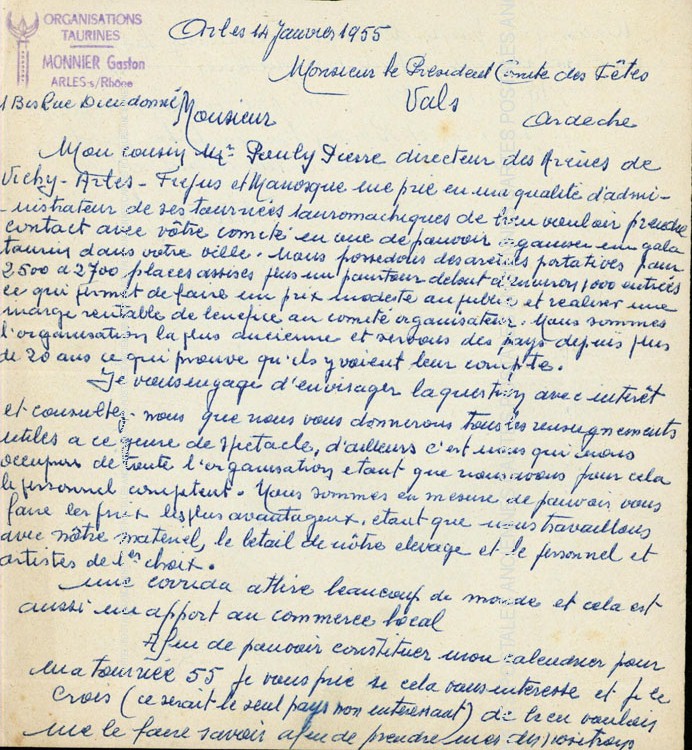 ORGANISATIONS
TAURINES
MONNIER Gaston
ARLES-s/Rhône
1 Bis Rue Dieudonné
Arles 14 Janvier 1955
Monsieur le President Comité des Fêtes
Vals
Ardeche
Monsieur
Mon cousin Mr Pouly Pierre directeur des Arènes de
Vichy - Arles - Frejus et Manosque me prie en ma qualité d'admi-
-nistrateur de ses tournées tauromachiques de bien vouloir prendre
contact avec vôtre comité en vue de pouvoir organiser un gala
taurin dans votre ville. Nous possedons des arènes portatives pour
2500 a 2700 places assises plus un pourtour debout d'environ 1,000 entrées
ce qui permet de faire un prix modeste au public et realiser une
marge rentable de benefice au comité organisateur. Nous sommes
l'organisation la plus ancienne et servons des pays depuis plus
de 20 ans ce qui prouve qu'ils y voient leur compte.
Je vous engage d'envisager la question avec interêt
et consultez-nous que nous vous donnerons tous les renseignements
utiles a ce genre de spectacle, d'ailleurs c'est nous qui nous
occupons de toute l'organisation etant que nous avons pour cela
le personnel competent. Nous sommes en mesure de pouvoir vous
faire les prix les plus avantageux, etant que nous travaillons
avec nôtre materiel, le betail de nôtre elevage et le personnel et
artistes de 1er choix.
une corrida attire beaucoup de monde et cela est
aussi un apport au commerce local
Afin de pouvoir constituer mon calendrier pour
ma tournée 55 je vous prie si cela vous interesse et je le
crois (ce serait le seul pays non interessant) de bien vouloir
me le faire savoir afin de prendre mes dispositions